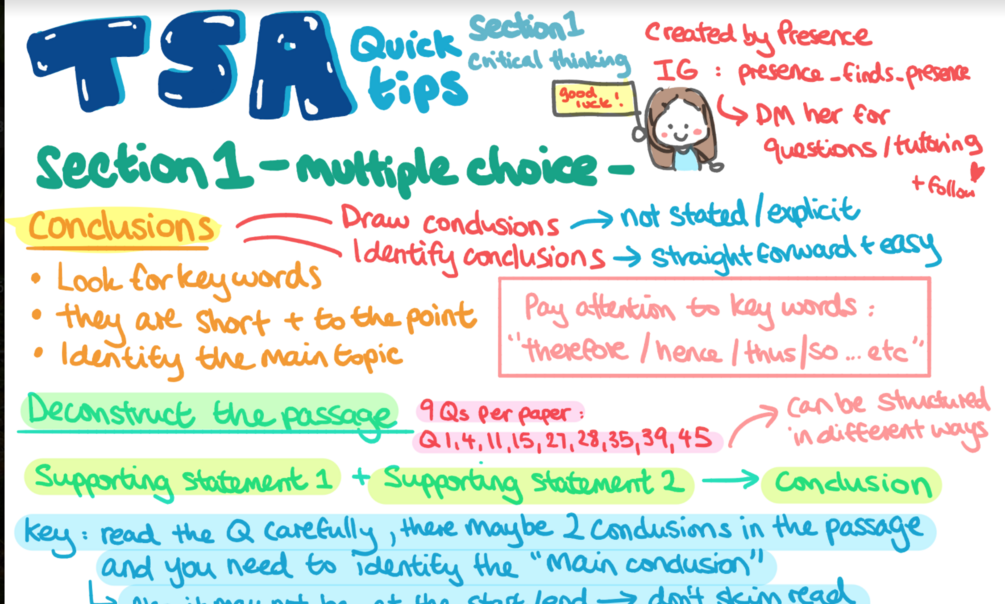 TSA Quick tips
Section 1
critical thinking
good luck!
Created by Presence
IG : presence_finds_presence
↳ DM her for
questions/tutoring
+ follow
Section 1 - multiple choice -
Conclusions
Draw conclusions → not stated/explicit
Identify conclusions → straight forward + easy
• Look for key words
• they are short + to the point
• Identify the main topic
Pay attention to key words :
"therefore / hence / thus / so ... etc"
Deconstruct the passage
9 Qs per paper :
Q 1, 4, 11, 15, 27, 28, 35, 39, 45
can be structured
in different ways
Supporting statement 1 + Supporting statement 2 → Conclusion
Key : read the Q carefully, there maybe 2 conclusions in the passage
and you need to identify the "main conclusion"
it may not be at the start/end → don't skim read